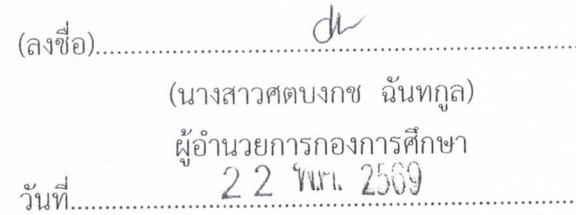 (ลงชื่อ)
(นางสาวศตบงกช ฉันทกูล)
ผู้อำนวยการกองการศึกษา
วันที่ 22 พ.ค. 2569